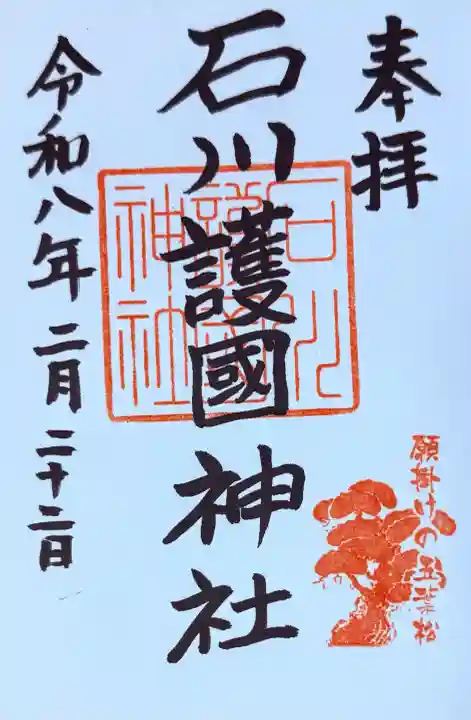 奉拝
石川護國神社
石川護國神社
令和八年二月二十二日
願掛けの五葉松